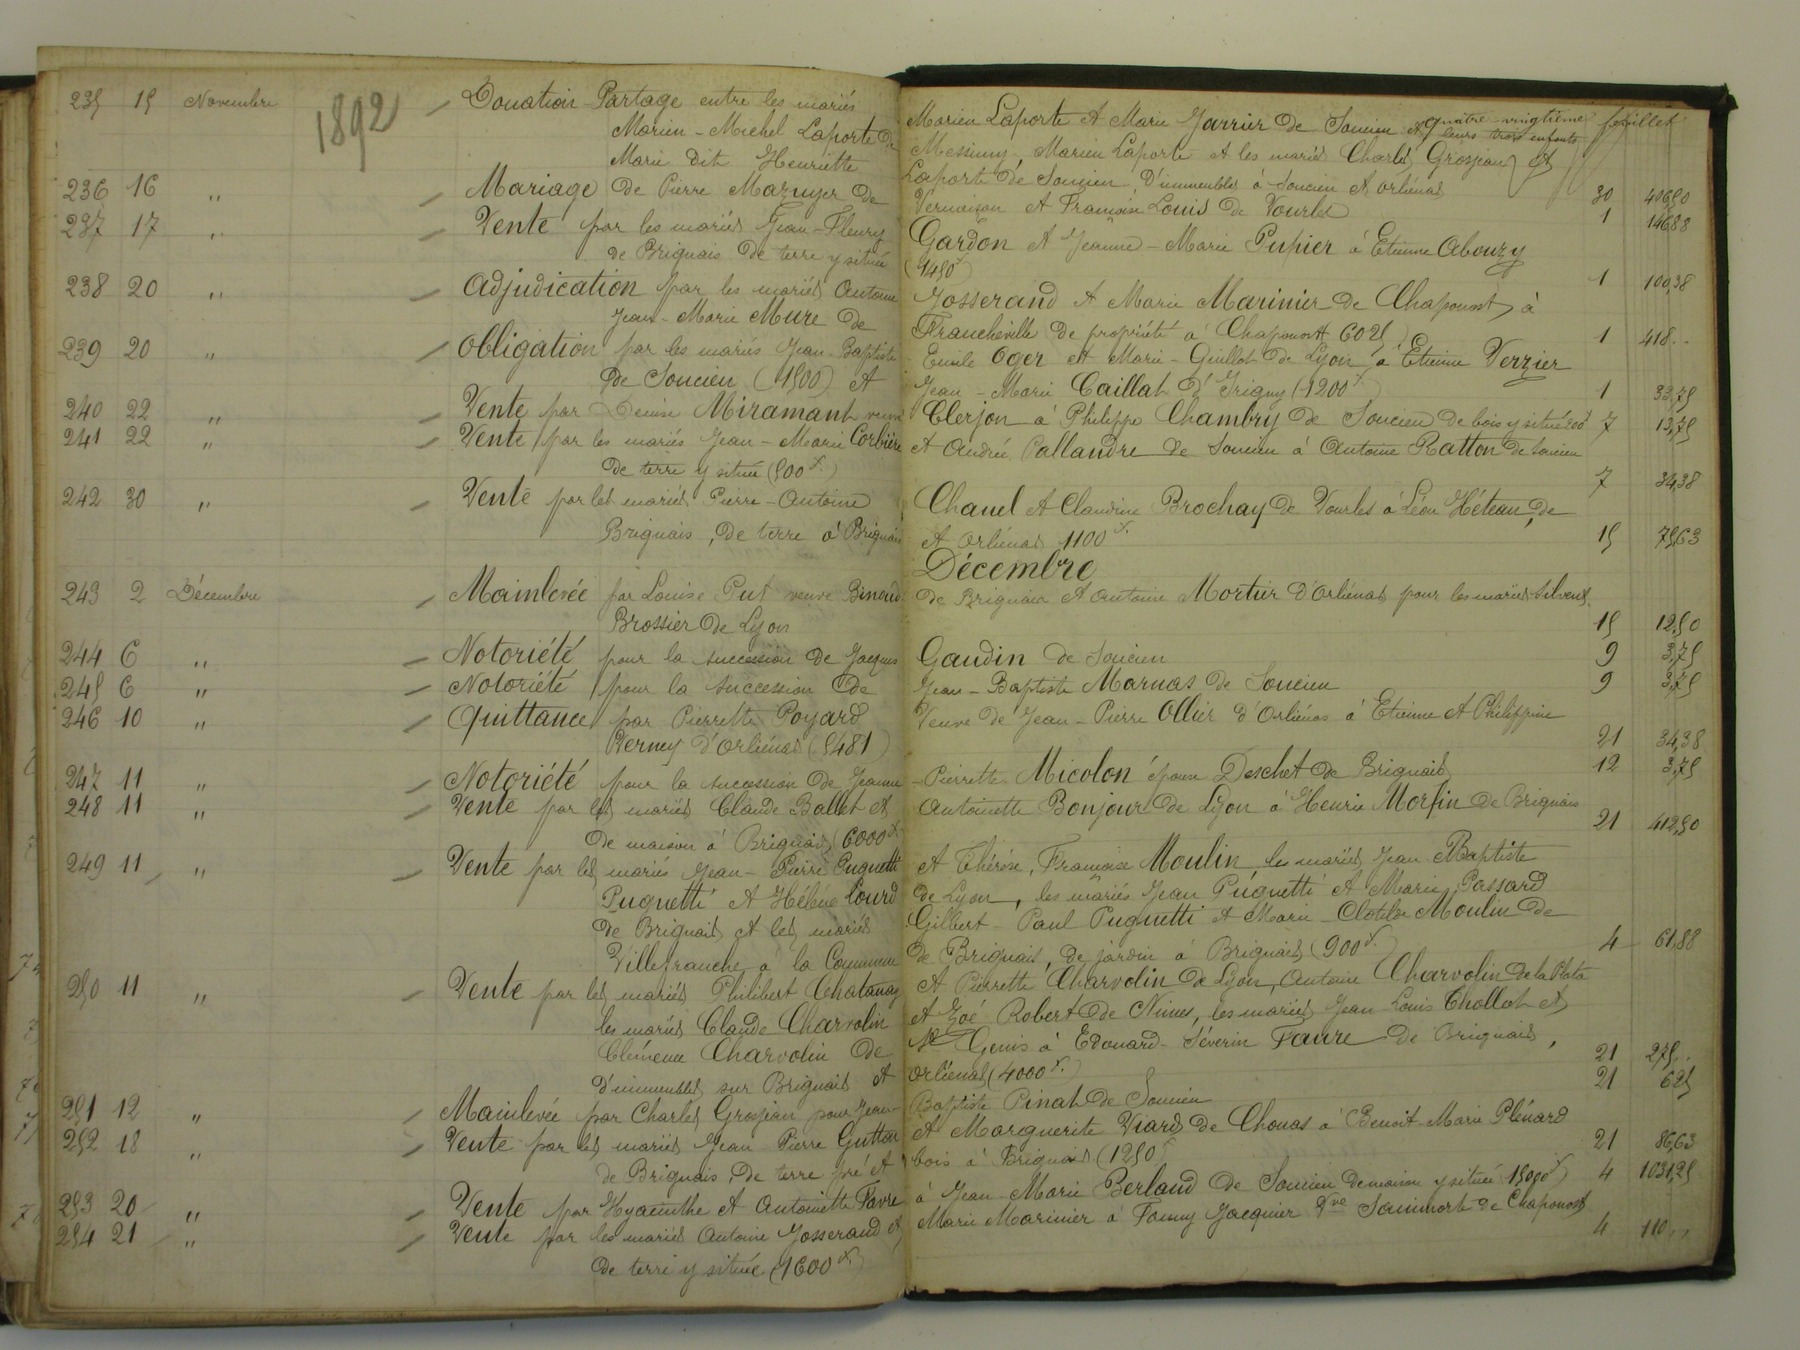 1892
quatre-vingtième feuillet
235 15 Novembre Donation-Partage entre les mariés Marien Laporte et Marie Jarrier de Soucieu et leurs trois enfants
Marien-Michel Laporte de Messimy, Marien Laporte et les mariés Charles Grosjean et
Marie dite Henriette Laporte de Soucieu, d'immeubles à Soucieu et Orliénas 30 406,50
236 16 " Mariage de Pierre Mazuyer de Vernaison et Françoise Louis de Vourles 1 146,88
237 17 " Vente par les mariés Jean-Fleury Gardon et Jeanne-Marie Pupier à Etienne Abouzy
de Brignais de terre y située (1450f) 1 100,38
238 20 " Adjudication par les mariés Antoine Josserand et Marie Marinier de Chaponost à
Jean-Marie Mure de Francheville de propriété à Chaponost (6025) 1 418..
239 20 " Obligation par les mariés Jean-Baptiste Emile Oger et Marie-Guillot de Lyon à Etienne Verzier
de Soucieu (1500) et Jean-Marie Caillat d'Irigny (1200f) 1 33,75
240 22 " Vente par Denise Miramant veuve Clerjon à Philippe Chambry de Soucieu de bois y situé 200f 7 13,75
241 22 " Vente par les mariés Jean-Marie Corbière et Andrée Pallandre de Soucieu à Antoine Ratton de Soucieu
de terre y située (500f) 7 34,38
242 30 " Vente par les mariés Pierre-Antoine Chanel et Claudine Brochay de Vourles à Léon Héteau, de
Brignais, de terre à Brignais et Orliénas 1100f. 15 75,63
Décembre
243 2 Décembre Mainlevée par Louise Put veuve Binoud de Brignais et Antoine Mortier d'Orliénas pour les mariés Silvent
Brossier de Lyon 15 12,50
244 6 " Notoriété pour la succession de Jacques Gaudin de Soucieu 9 3,75
245 6 " Notoriété pour la succession de Jean-Baptiste Marnas de Soucieu 9 3,75
246 10 " Quittance par Pierrette Poyard Veuve de Jean-Pierre Ollier d'Orliénas à Etienne et Philippine
Verney d'Orliénas (5481) 21 34,38
247 11 " Notoriété pour la succession de Jeanne-Pierrette Micolon épouse Deschet de Brignais 12 3,75
248 11 " Vente par les mariés Claude Ballet et Antoinette Bonjour de Lyon à Henrie Morfin de Brignais
de maison à Brignais (6000f) 21 412,50
249 11 " Vente par les mariés Jean-Pierre Pugnetti et Thérèse, Françoise Moulin, les mariés Jean-Baptiste
Pugnetti et Hélène Lourd de Lyon, les mariés Jean Puguetti et Marie Passard
de Brignais et les mariés Gilbert-Paul Puguetti et Marie-Clotilde Moulin de
Villefranche à la Commune de Brignais, de jardin à Brignais (900f.) 4 61,88
250 11 " Vente par les mariés Philibert Chatanay et Pierrette Charvolin de Lyon, Antoine Charvolin de la Plata
les mariés Claude Charvolin et Zoé Robert de Nimes, les mariés Jean-Louis Chollat et
Clémence Charvolin de St Genis à Edouard-Séverin Faure de Brignais,
d'immeubles sur Brignais et Orliénas (4000f.) 21 275..
251 12 " Mainlevée par Charles Grosjean pour Jean-Baptiste Pinat de Soucieu 21 6,25
252 18 " Vente par les mariés Jean Pierre Gutton et Marguerite Viard de Chonas à Benoit-Marie Plénard
de Brignais, de terre pré et bois à Brignais (1250f) 21 86,63
253 20 " Vente par Hyacinthe et Antoinette Favre à Jean-Marie Berland de Soucieu de maison y située (15000f) 4 1031,25
254 21 " Vente par les mariés Antoine Josserand et Marie Marinier à Fanny Jacquier Vve Sainmort de Chaponost
de terre y située (1600f.) 4 110..